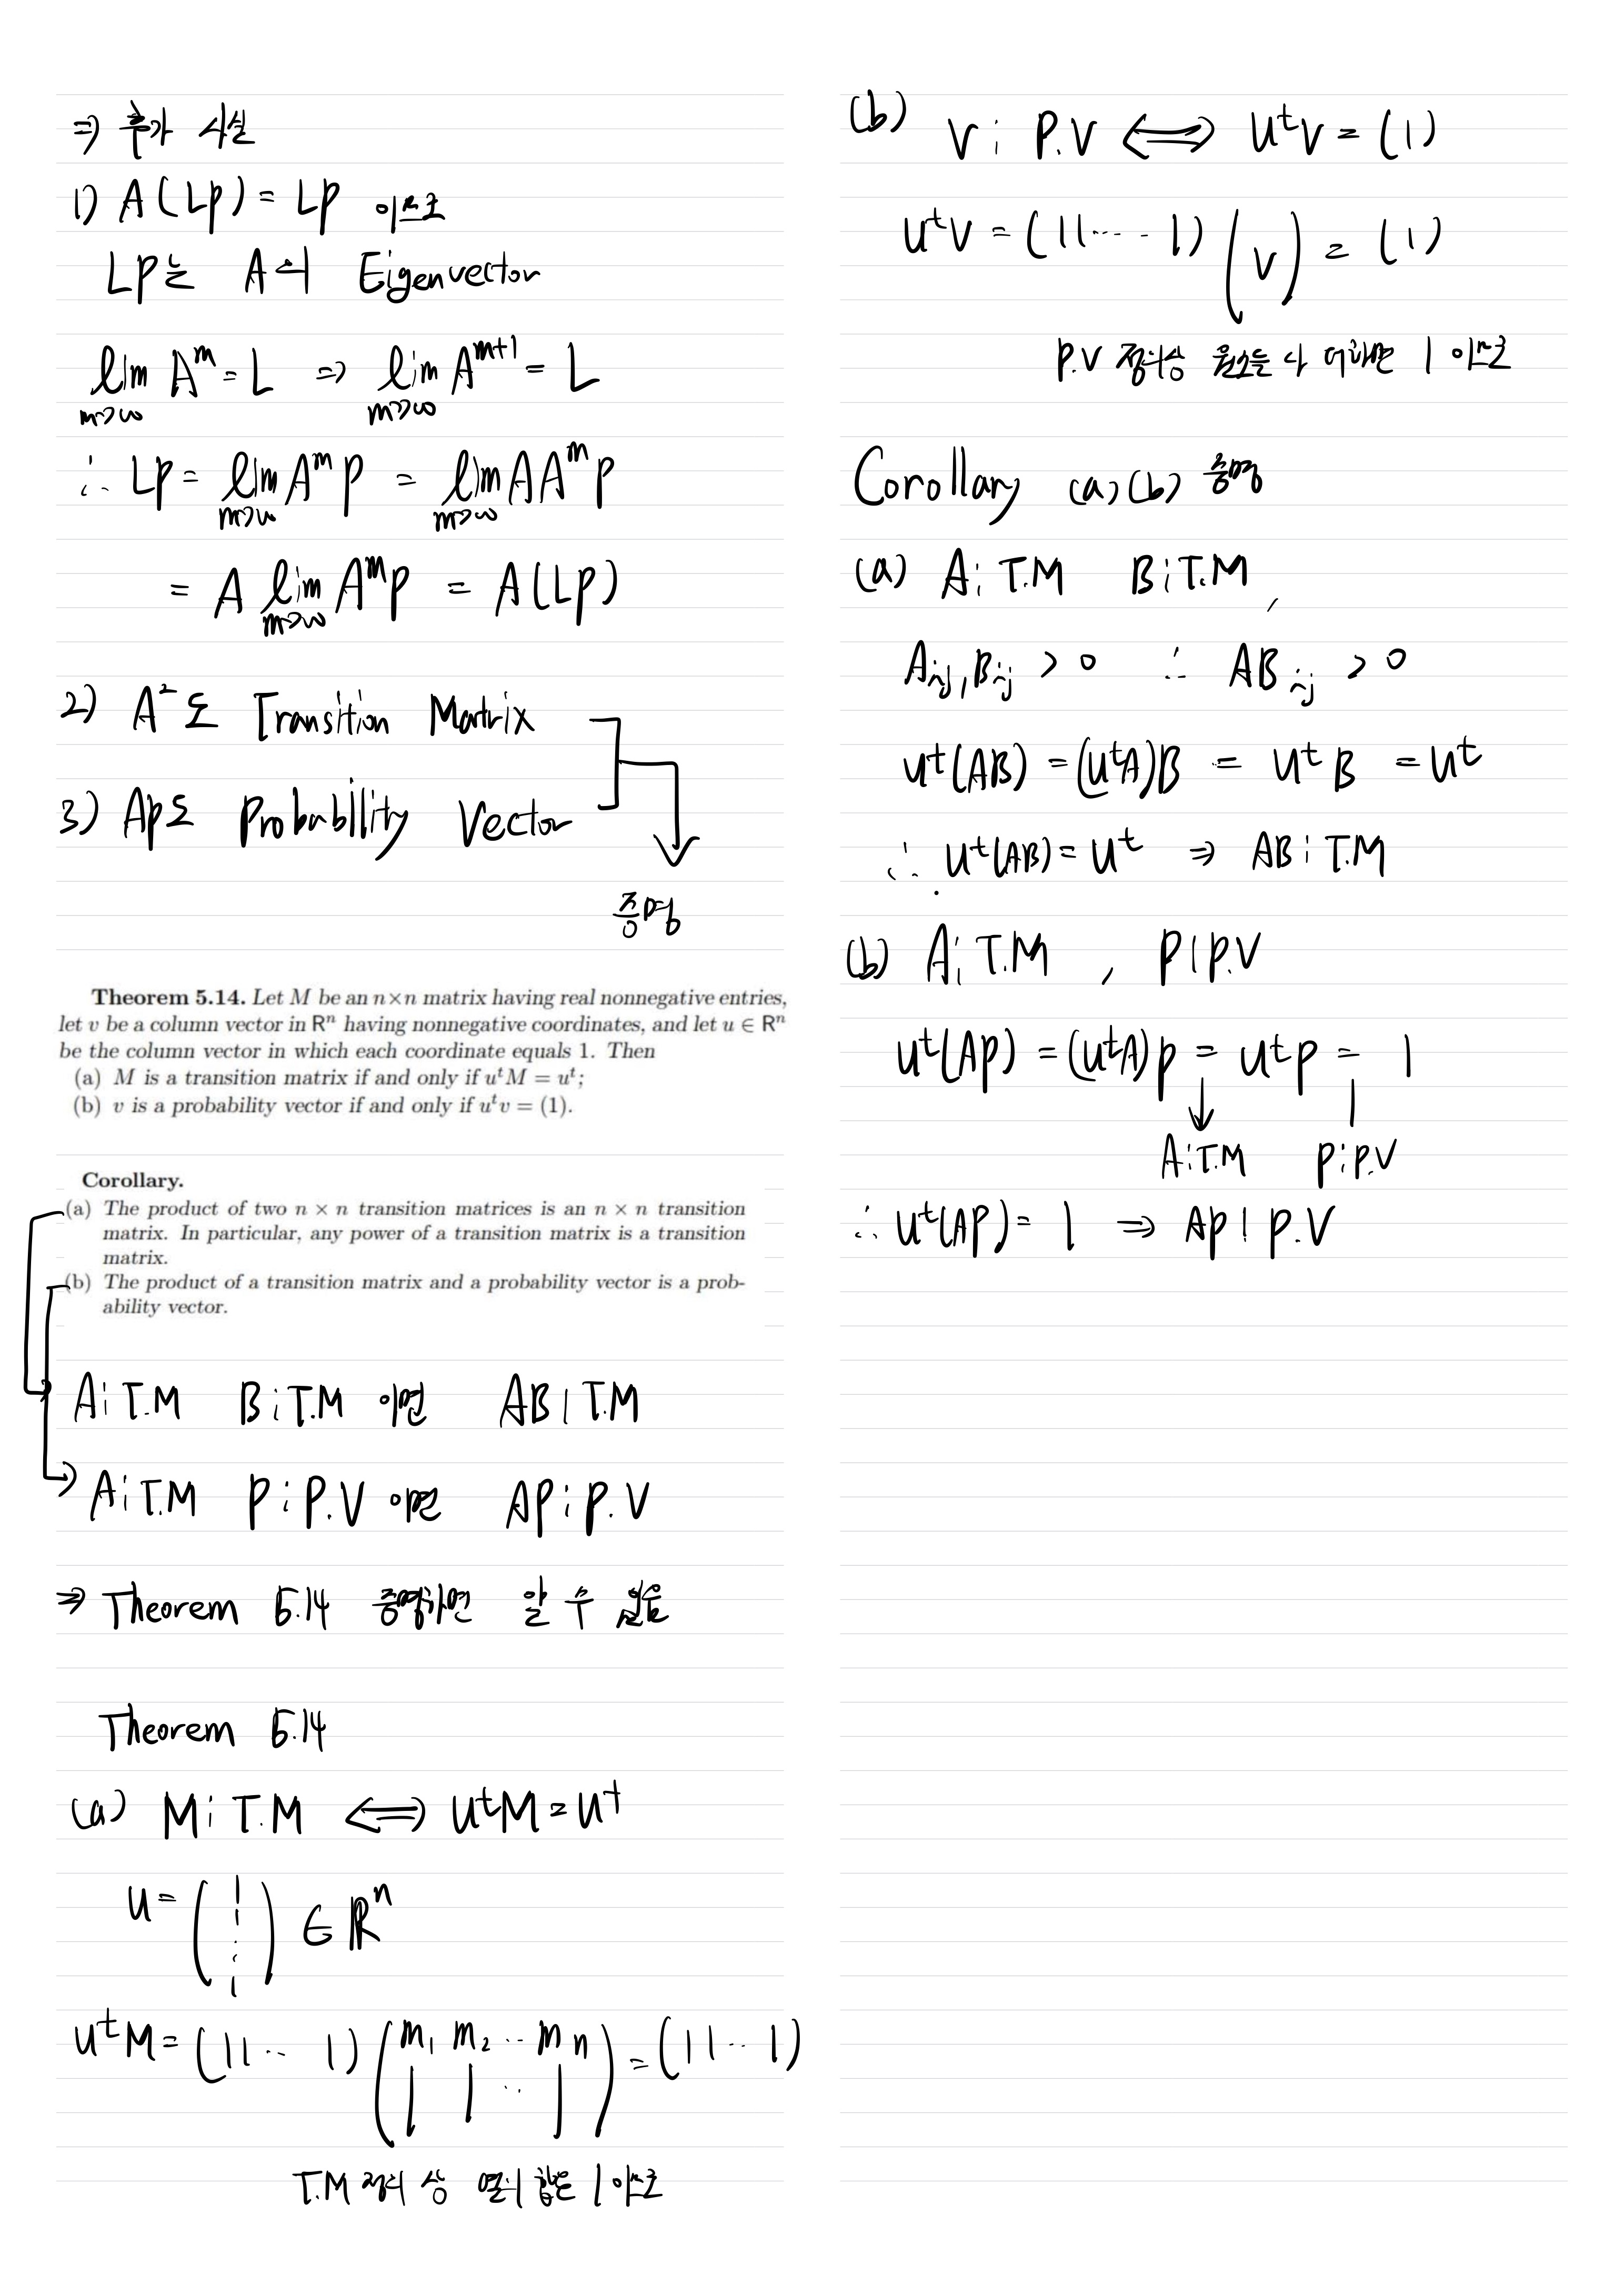 ⇒ 추가 사실
1) A(Lp) = Lp 이므로
Lp는 A의 Eigenvector
lim A^m = L ⇒ lim A^{m+1} = L
m→∞ m→∞
∴ Lp = lim A^m p = lim AA^m p
m→∞ m→∞
= A lim A^m p = A(Lp)
m→∞
2) A²도 Transition Matrix
3) Ap도 Probability Vector
증명
Theorem 5.14. Let M be an n×n matrix having real nonnegative entries,
let v be a column vector in Rⁿ having nonnegative coordinates, and let u ∈ Rⁿ
be the column vector in which each coordinate equals 1. Then
(a) M is a transition matrix if and only if uᵗM = uᵗ;
(b) v is a probability vector if and only if uᵗv = (1).
Corollary.
(a) The product of two n × n transition matrices is an n × n transition
matrix. In particular, any power of a transition matrix is a transition
matrix.
(b) The product of a transition matrix and a probability vector is a prob-
ability vector.
A: T.M B: T.M 이면 AB: T.M
A: T.M P: P.V 이면 AP: P.V
⇒ Theorem 5.14 증명하면 알 수 있음
Theorem 5.14
(a) M: T.M ⟺ uᵗM = uᵗ
u = (1 1 ⋮ 1) ∈ ℝⁿ
uᵗM = (1 1 ⋯ 1) (m₁ m₂ ⋯ mₙ) = (1 1 ⋯ 1)
T.M 정의 상 열의 합은 1 이므로
(b) v: P.V ⟺ uᵗv = (1)
uᵗv = (1 1 ⋯ 1) (v) = (1)
P.V 정의상 원소들 다 더하면 1 이므로
Corollary (a) (b) 증명
(a) A: T.M B: T.M,
A_ij, B_ij > 0 ∴ AB_ij > 0
uᵗ(AB) = (uᵗA)B = uᵗB = uᵗ
∴ uᵗ(AB) = uᵗ ⇒ AB: T.M
(b) A: T.M , P: P.V
uᵗ(Ap) = (uᵗA)p = uᵗp = 1
A: T.M P: P.V
∴ uᵗ(Ap) = 1 ⇒ Ap: P.V